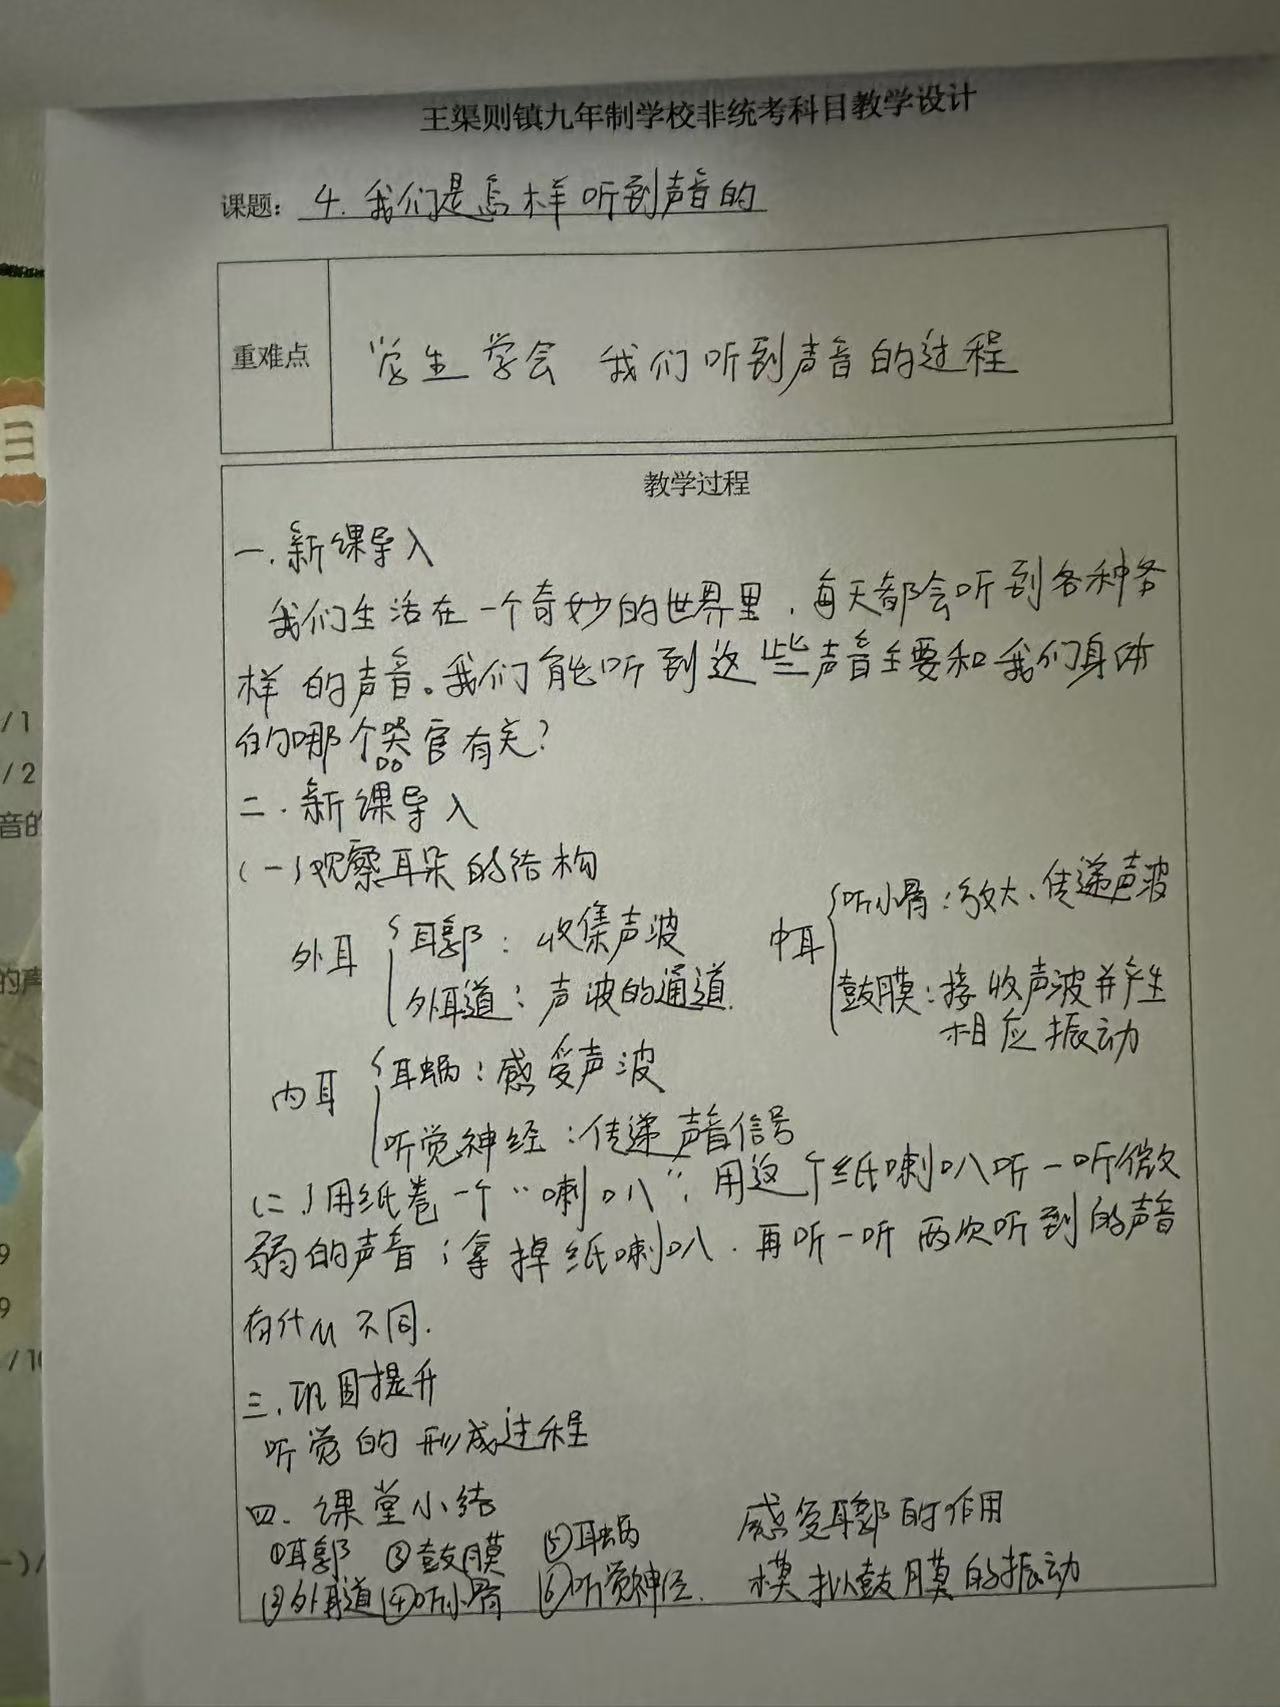 王渠则镇九年制学校非统考科目教学设计
课题: 4.我们是怎样听到声音的
重难点
学生学会 我们听到声音的过程
教学过程
一.新课导入
我们生活在一个奇妙的世界里,每天都会听到各种各
样的声音。我们能听到这些声音主要和我们身体
的哪个器官有关?
二.新课导入
(一)观察耳朵的结构
外耳 { 耳郭: 收集声波
外耳道: 声波的通道.
中耳 { 听小骨:放大、传递声波
鼓膜:接收声波并产生
相应振动
内耳 { 耳蜗:感受声波
听觉神经:传递声音信号
(二)用纸卷一个“喇叭”,用这个纸喇叭听一听微
弱的声音;拿掉纸喇叭.再听一听两次听到的声音
有什么不同.
三.巩固提升
听觉的形成过程
四.课堂小结
①耳郭 ③鼓膜 ⑤耳蜗 感受耳郭的作用
②外耳道 ④听小骨 ⑥听觉神经. 模拟鼓膜的振动
三
/1
/2
音的
的声
9
9
/10